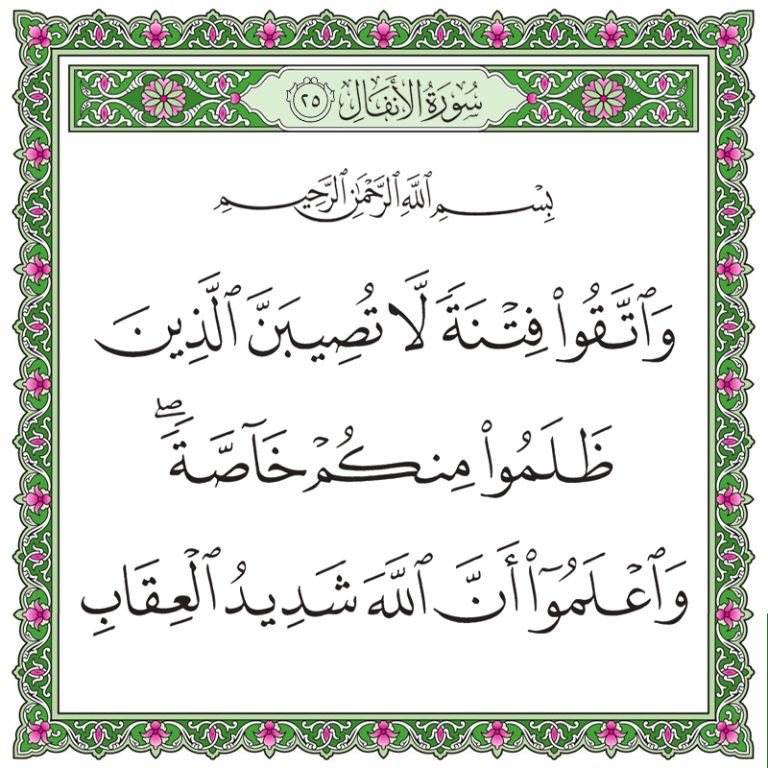 سُورَةُ الأَنفَالِ ٢٥
بِسْمِ ٱللَّهِ ٱلرَّحْمَٰنِ ٱلرَّحِيمِ
وَٱتَّقُوا۟ فِتْنَةً لَّا تُصِيبَنَّ ٱلَّذِينَ
ظَلَمُوا۟ مِنكُمْ خَآصَّةً ۖ
وَٱعْلَمُوٓا۟ أَنَّ ٱللَّهَ شَدِيدُ ٱلْعِقَابِ